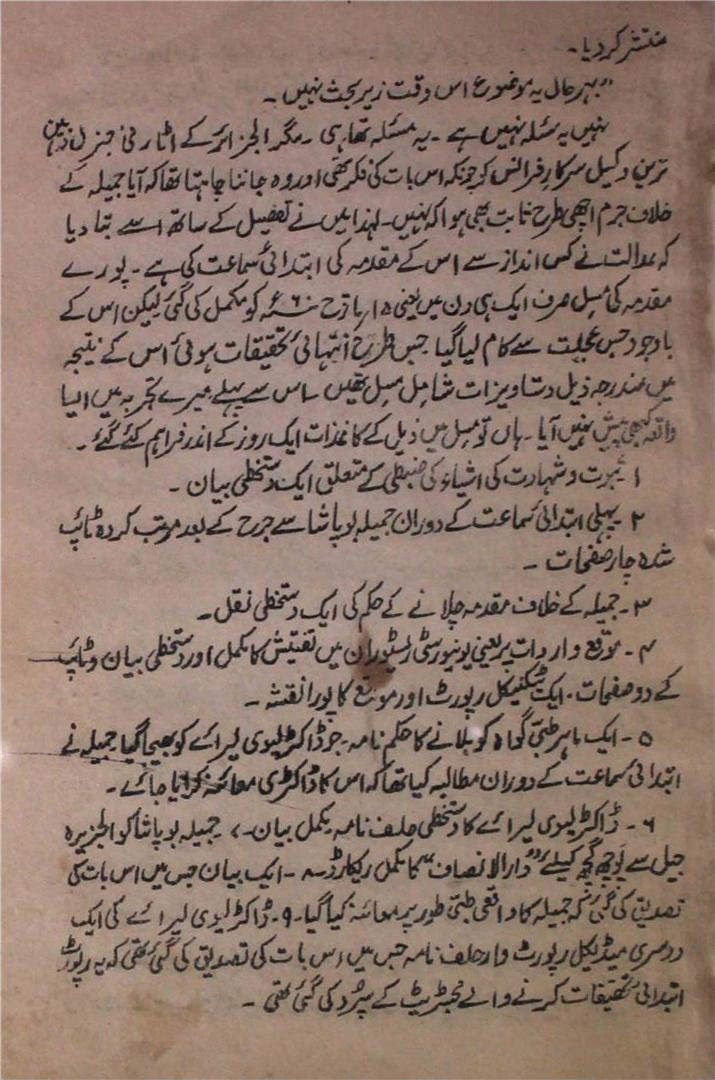 منتشر کر دیا۔
"بہر حال یہ موضوع اس وقت زیر بحث نہیں۔
نہیں یہ مسئلہ نہیں ہے۔ یہ مسئلہ تھا ہی۔ مگر الجزائر کے اٹارنی جنرل ذہین
ترین وکیل سرکار فرانس کو چونکہ اس بات کی فکر تھی اور وہ جاننا چاہتا تھا کہ آیا جمیلہ کے
خلاف جرم اچھی طرح ثابت بھی ہوا کہ نہیں۔ لہذا میں نے تفصیل کے ساتھ اسے بتا دیا
کہ عدالت نے کس انداز سے اس کے مقدمہ کی ابتدائی سماعت کی ہے۔ پورے
مقدمہ کی مسل صرف ایک ہی دن میں یعنی ۱۵ مارچ ۶۰ء کو مکمل کی گئی لیکن اس کے
باوجود جس عجلت سے کام لیا گیا جس طرح انتہائی تحقیقات ہوئی اس کے نتیجہ
میں مندرجہ ذیل دستاویزات شامل مسل تھیں۔ اس سے پہلے میرے تجربہ میں ایسا
واقعہ کبھی پیش نہیں آیا۔ ہاں تو مسل میں ذیل کے کاغذات ایک روز کے اندر فراہم کئے گئے۔
۱۔ ثبوت و شہادت کی اشیاء کی ضبطی کے متعلق ایک دستخطی بیان۔
۲۔ پہلی ابتدائی سماعت کے دوران جمیلہ بوپاشا سے جرح کے بعد مرتب کردہ ٹائپ
شدہ چار صفحات۔
۳۔ جمیلہ کے خلاف مقدمہ چلانے کے حکم کی ایک دستخطی نقل۔
۴۔ موقع واردات پر یعنی یونیورسٹی رسٹوران میں تفتیش کا مکمل اور دستخطی بیان و ٹائپ
کے دو صفحات۔ ایک ٹیکنیکل رپورٹ اور موقع کا پورا نقشہ۔
۵۔ ایک ماہر طبّی گواہ کو بلانے کا حکم نامہ۔ جو ڈاکٹر لیوی لیرائے کو بھیجا گیا جمیلہ نے
ابتدائی سماعت کے دوران مطالبہ کیا تھا کہ اس کا ڈاکٹری معائنہ کرایا جائے۔
۶۔ ڈاکٹر لیوی لیرائے کا دستخطی حلف نامہ مکمل بیان۔ ۷۔ جمیلہ بوپاشا کو الجزیرہ
جیل سے پوچھ گچھ کیلئے "دارالانصاف" کا مکمل ریکارڈ۔ ۸۔ ایک بیان جس میں اس بات کی
تصدیق کی گئی کہ جمیلہ کا واقعی طبّی طور پر معائنہ کیا گیا۔ ۹۔ ڈاکٹر لیوی لیرائے کی ایک
دوسری میڈیکل رپورٹ وار حلف نامہ جس میں اس بات کی تصدیق کی گئی تھی کہ یہ رپورٹ
ابتدائی تحقیقات کرنے والے مجسٹریٹ کے سپرد کی گئی تھی۔